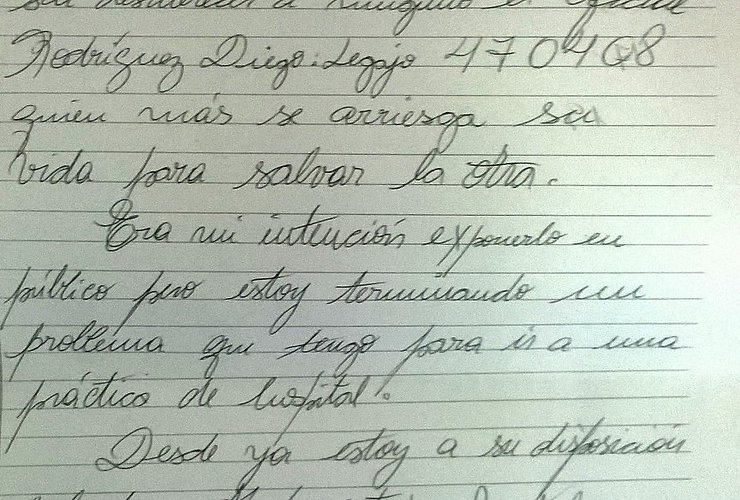 sin desmerecer a ninguno el Oficial
Rodríguez Diego. Legajo 470408
quien más se arriesga su
vida para salvar la otra.
Era mi intención exponerlo en
público pero estoy terminando un
problema que tengo para ir a una
práctica de hospital.
Desde ya estoy a su disposición